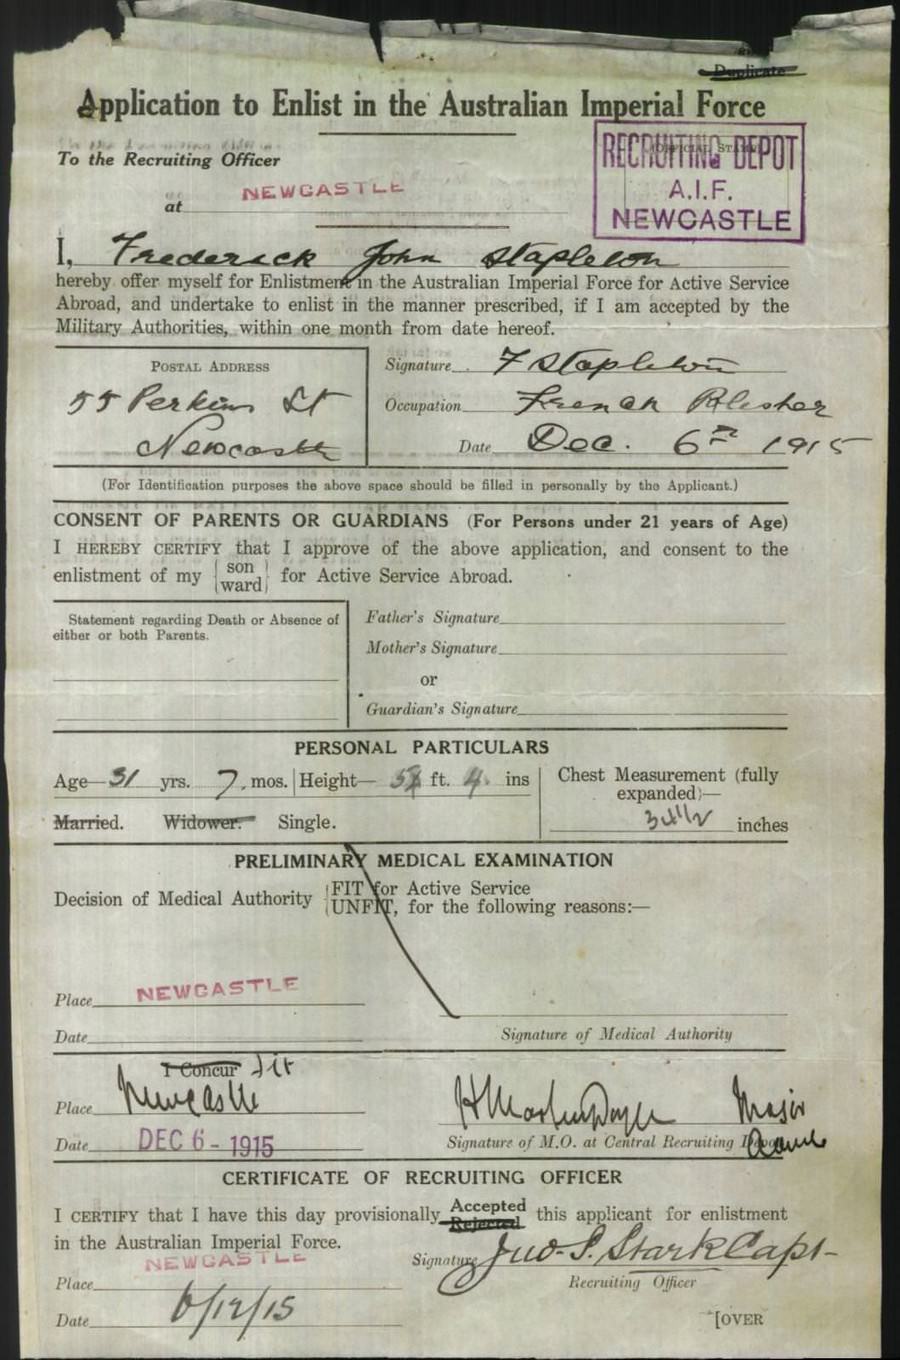 Duplicate
Application to Enlist in the Australian Imperial Force
To the Recruiting Officer
RECRUITING DEPOT
A.I.F.
NEWCASTLE
at NEWCASTLE
I, Frederick John Stapleton
hereby offer myself for Enlistment in the Australian Imperial Force for Active Service
Abroad, and undertake to enlist in the manner prescribed, if I am accepted by the
Military Authorities, within one month from date hereof.
POSTAL ADDRESS
55 Perkins St
Newcastle
Signature F Stapleton
Occupation French Polisher
Date Dec. 6th 1915
(For Identification purposes the above space should be filled in personally by the Applicant.)
CONSENT OF PARENTS OR GUARDIANS (For Persons under 21 years of Age)
I HEREBY CERTIFY that I approve of the above application, and consent to the
enlistment of my {son ward} for Active Service Abroad.
Statement regarding Death or Absence of
either or both Parents.
Father's Signature
Mother's Signature
or
Guardian's Signature
PERSONAL PARTICULARS
Age—31 yrs. 7 mos. Height— 5 ft. 4 ins
Chest Measurement (fully
expanded)—
34 1/2 inches
Married. Widower. Single.
PRELIMINARY MEDICAL EXAMINATION
Decision of Medical Authority
FIT for Active Service
UNFIT, for the following reasons:—
Place NEWCASTLE
Date
Signature of Medical Authority
I Concur fit
Place Newcastle
Major
Date DEC 6 - 1915
Signature of M.O. at Central Recruiting Depot
CERTIFICATE OF RECRUITING OFFICER
I CERTIFY that I have this day provisionally Accepted Rejected this applicant for enlistment
in the Australian Imperial Force.
Signature Jno. S. Stark Capt
NEWCASTLE
Place
Recruiting Officer
Date 6/12/15
[OVER